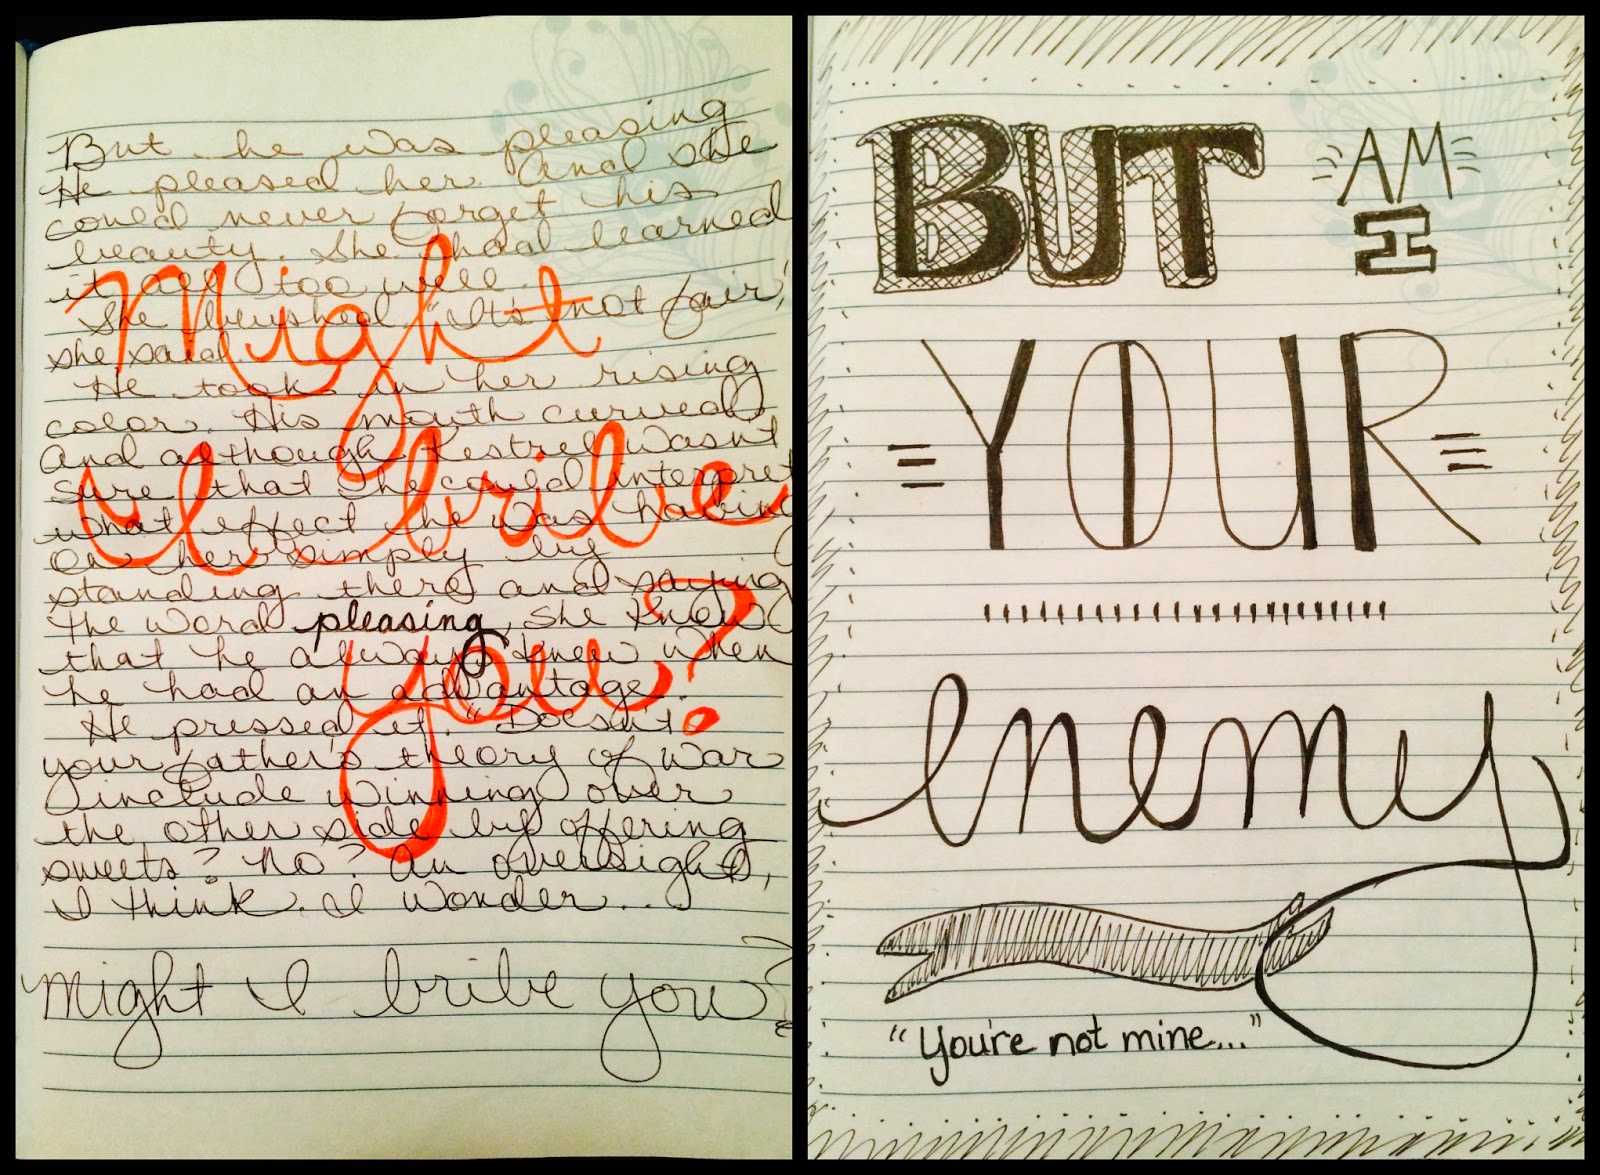 But he was pleasing
He pleased her. And she
could never forget his
beauty. She had learned
it all too well.
She blushed. "It's not fair,"
she said.
He took in her rising
color. His mouth curved
And although Kestrel wasn't
sure that he could interpret
what effect he was having
on her simply by
standing there and saying
the word pleasing, she knew
that he always knew when
he had an advantage.
He pressed it. "Doesn't
your father's theory of war
include winning over
the other side by offering
sweets? No? An oversight,
I think. I wonder...
might I bribe you?
Might
I bribe
you?
BUT AM
I
YOUR
enemy
"You're not mine..."